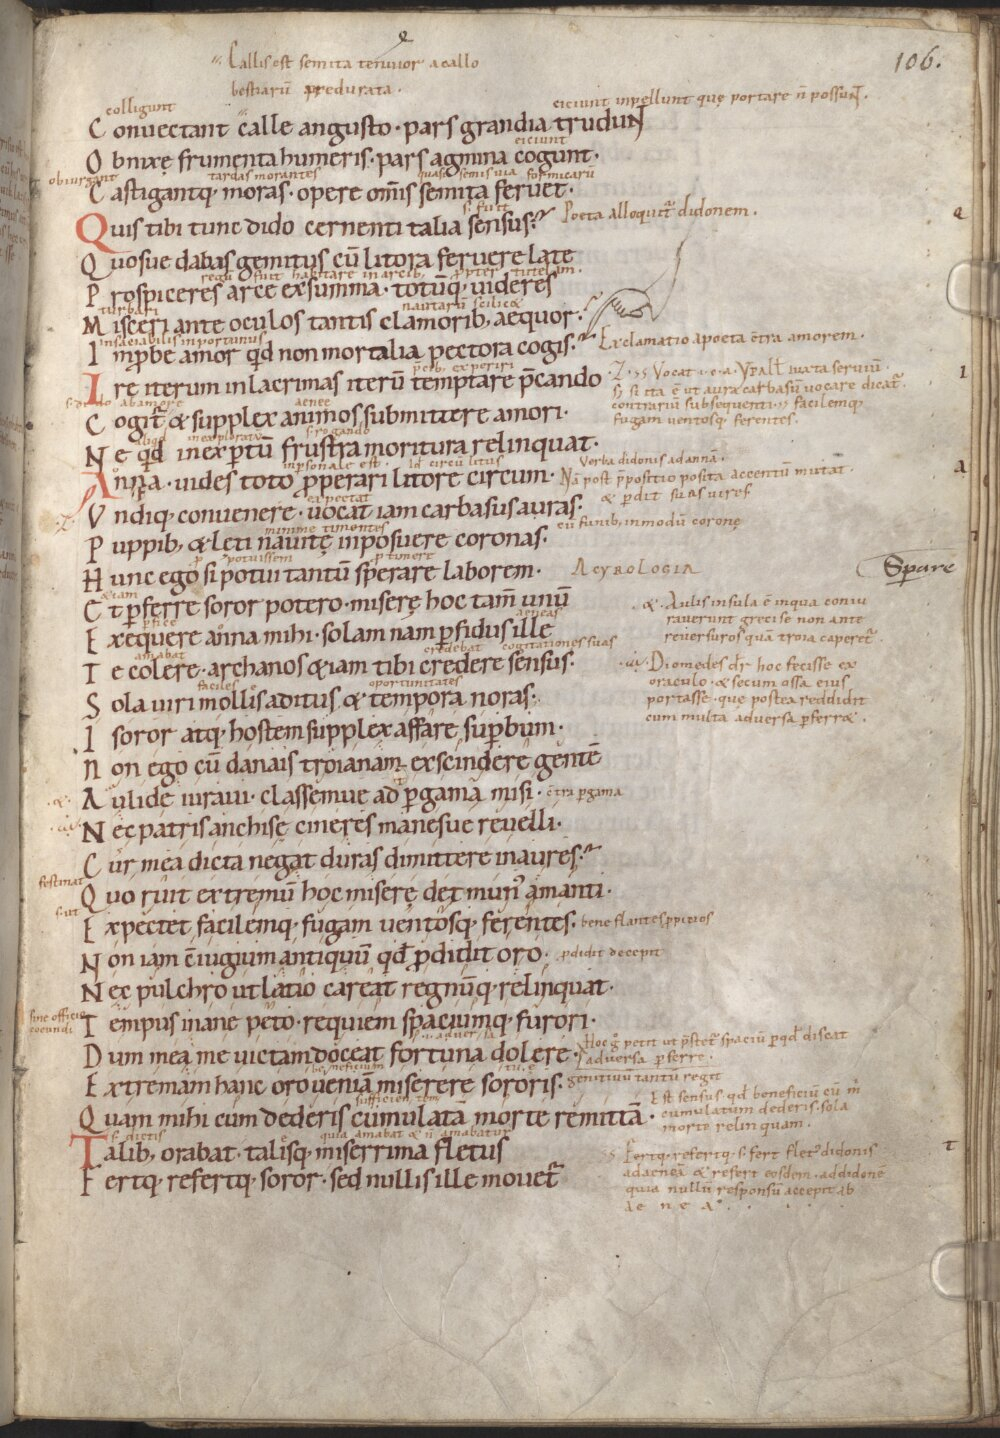 106.
Callis est semita tenuior a callo
bestiarū predurata.
colligunt
eiciunt inpellunt quę portare ñ possunt.
Conuectant calle angusto· pars grandia trudunt
eiciunt
Obnixę frumenta humeris· pars agmina cogunt·
obiurgant tardas morantes quasi semis uia formicarū
Castigantq; moras· opere omīs semita feruet·
s. fuit
Poeta alloquit̄ didonem.
Quis tibi tunc dido cernenti talia sensus?
Quosue dabas gemitus cū litora feruere late
Prospiceres arce ex summa· totūq; uideres
turbari nautarū scilicet
Misceri ante oculos tantis clamorib; aequor?
insaciabilis inportunus
Exclamatio a poeta c̄tra amorem.
Inprobe amor qd non mortalia pectora cogis?
p̄cib; experiri
Ire iterum in lacrimas iterū temptare p̄cando
ab amore aenee
Cogit̄ & supplex animos submittere amori·
Ne qd inexptū frustra moritura relinquat·
inpersonale est. circū litus
Verba didonis ad annā.
Anna· uides toto properari litore circum·
Nā post p̄positio posita accentū mutat
& perdit suas uires
expectat
Vndiq; conuenere· uocat iam carbasus auras·
cū funib; in modū coronę
Puppib; & leti nautę inposuere coronas·
potuissem p timere
Hunc ego si potui tantū sperare laborem·
Acyrologia
Spare
etiam
Et perferre soror potero· miserę hoc tam̄ unū
aeneas
Exequere anna mihi· solam nam perfidus ille
amabat credebat cogitationes suas
Te colere· archanos & iam tibi credere sensus·
faciles oportunitates
Sola uiri mollis aditus & tempora noras·
I soror atq; hostem supplex affare superbum·
Non ego cū danais troianam exscindere gentē
Aulide iuraui· classemue ad pergama misi· c̄tra pergama
Nec patris anchise cineres manesue reuelli·
Cur mea dicta negat duras dimittere in aures?
festinat
Quo ruit extremū hoc miserę det mun' amanti·
Expectet facilemq· fugam uentosq; ferentes· bene flantes ppitios
Non iam c̄iugium antiquū qd perdidit oro· perdidit decepit
Nec pulchro ut latio careat regnūq; relinquat·
sine officio
Tempus inane peto· requiem spaciumq· furori·
Dum mea me uictam doceat fortuna dolere·
Hoc g petit ut p̄stet spaciū p qd discat
aduersa perferre.
beneficium
Extremam hanc oro ueniam miserere sororis·
genitiuū tantū regit
Quam mihi cum dederis cumulatā morte remittā·
Est sensus qd beneficiū cū m̄
cumulatum dederis sola
morte relinquam.
s. dictis quia amabat & ñ amabatur
Talib; orabat· talisq; miserrima fletus
Fertq· refertq· soror· sed nullis ille mouet̄
Fertq· refertq· s. fert flet' didonis
ad aeneā & refert eosdem ad didonē
quia nullū responsū accepit ab
aenea.
Vocat
contrariū subsequenti facilemq;
fugam uentosq· ferentes.
& Aulis insula ē in qua coniu
rauerunt greci se non ante
reuersuros quā troia caperet̄.
Diomedes dr̄ hoc fecisse ex
oraculo & secum ossa eius
portasse· que postea reddidit
cum multa aduersa perferret.